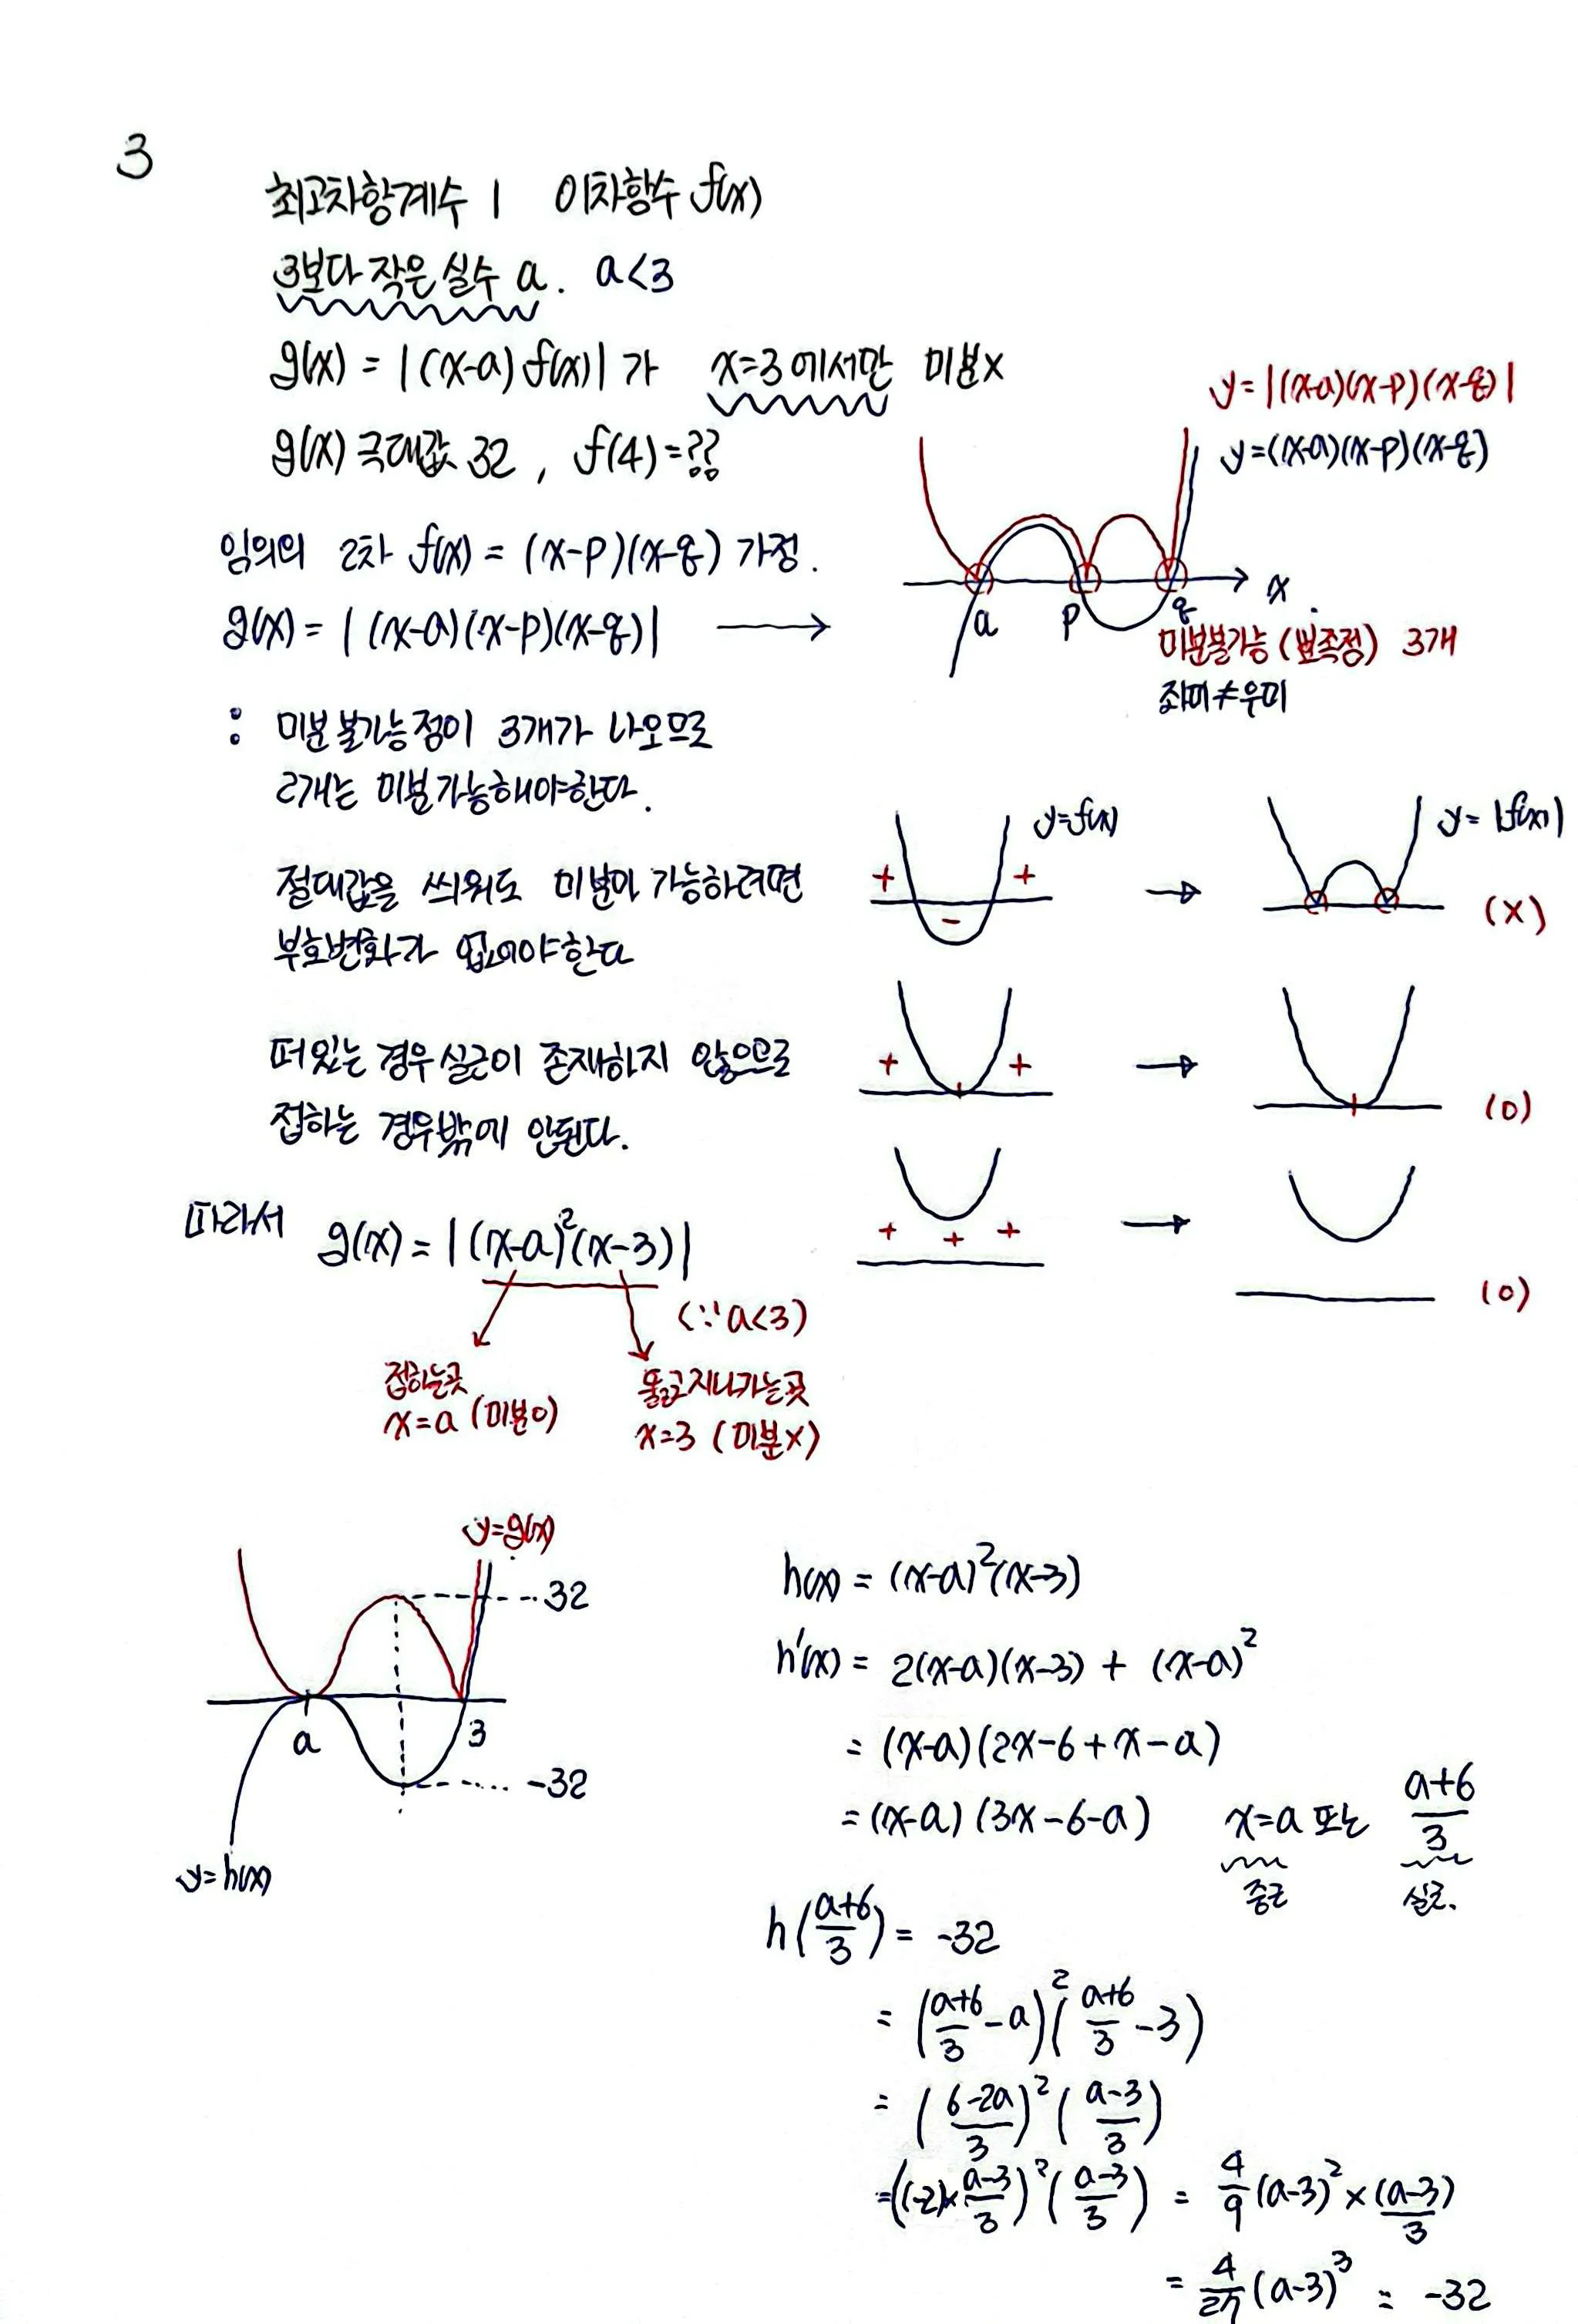 3
최고차항계수 1 이차함수 f(x)
3보다 작은 실수 a. a<3
g(x) = |(x-a) f(x)| 가 x=3 에서만 미분x
g(x) 극대값 32, f(4)=??
y=|(x-a)(x-p)(x-q)|
y=(x-a)(x-p)(x-q)
임의의 2차 f(x) = (x-p)(x-q) 가정.
g(x) = |(x-a)(x-p)(x-q)| →
a p q x
미분불가능 (뾰족점) 3개
좌미≠우미
: 미분불가능점이 3개가 나오므로
2개는 미분가능해야한다.
y=f(x) → y=|f(x)|
+ - + (x)
절대값을 씌워도 미분이 가능하려면
부호변화가 없어야한다
+ + → (o)
떠있는 경우 실근이 존재하지 않으므로
접하는 경우밖에 안된다.
+ + + → (o)
따라서 g(x) = |(x-a)²(x-3)|
(∵a<3)
접하는곳
x=a (미분o)
뚫고지나가는곳
x=3 (미분x)
y=g(x)
32
a 3
-32
y=h(x)
h(x) = (x-a)²(x-3)
h'(x) = 2(x-a)(x-3) + (x-a)²
= (x-a)(2x-6+x-a)
= (x-a)(3x-6-a) x=a 또는 (a+6)/3
중근 실근.
h((a+6)/3) = -32
= ((a+6)/3 - a)² ((a+6)/3 - 3)
= ((6-2a)/3)² ((a-3)/3)
= ((-2)×(a-3)/3)² ((a-3)/3) = 4/9 (a-3)² × (a-3)/3
= 4/27 (a-3)³ = -32